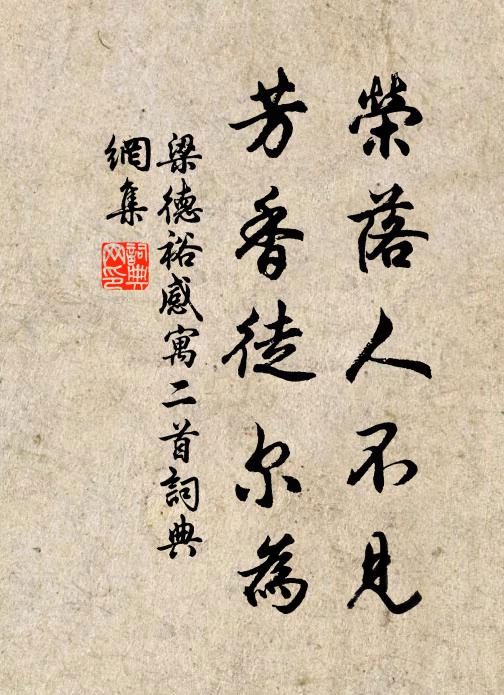 榮落人不見
芳香徒尔為
梁德裕感寓二首詞典
網集
詞典
网印